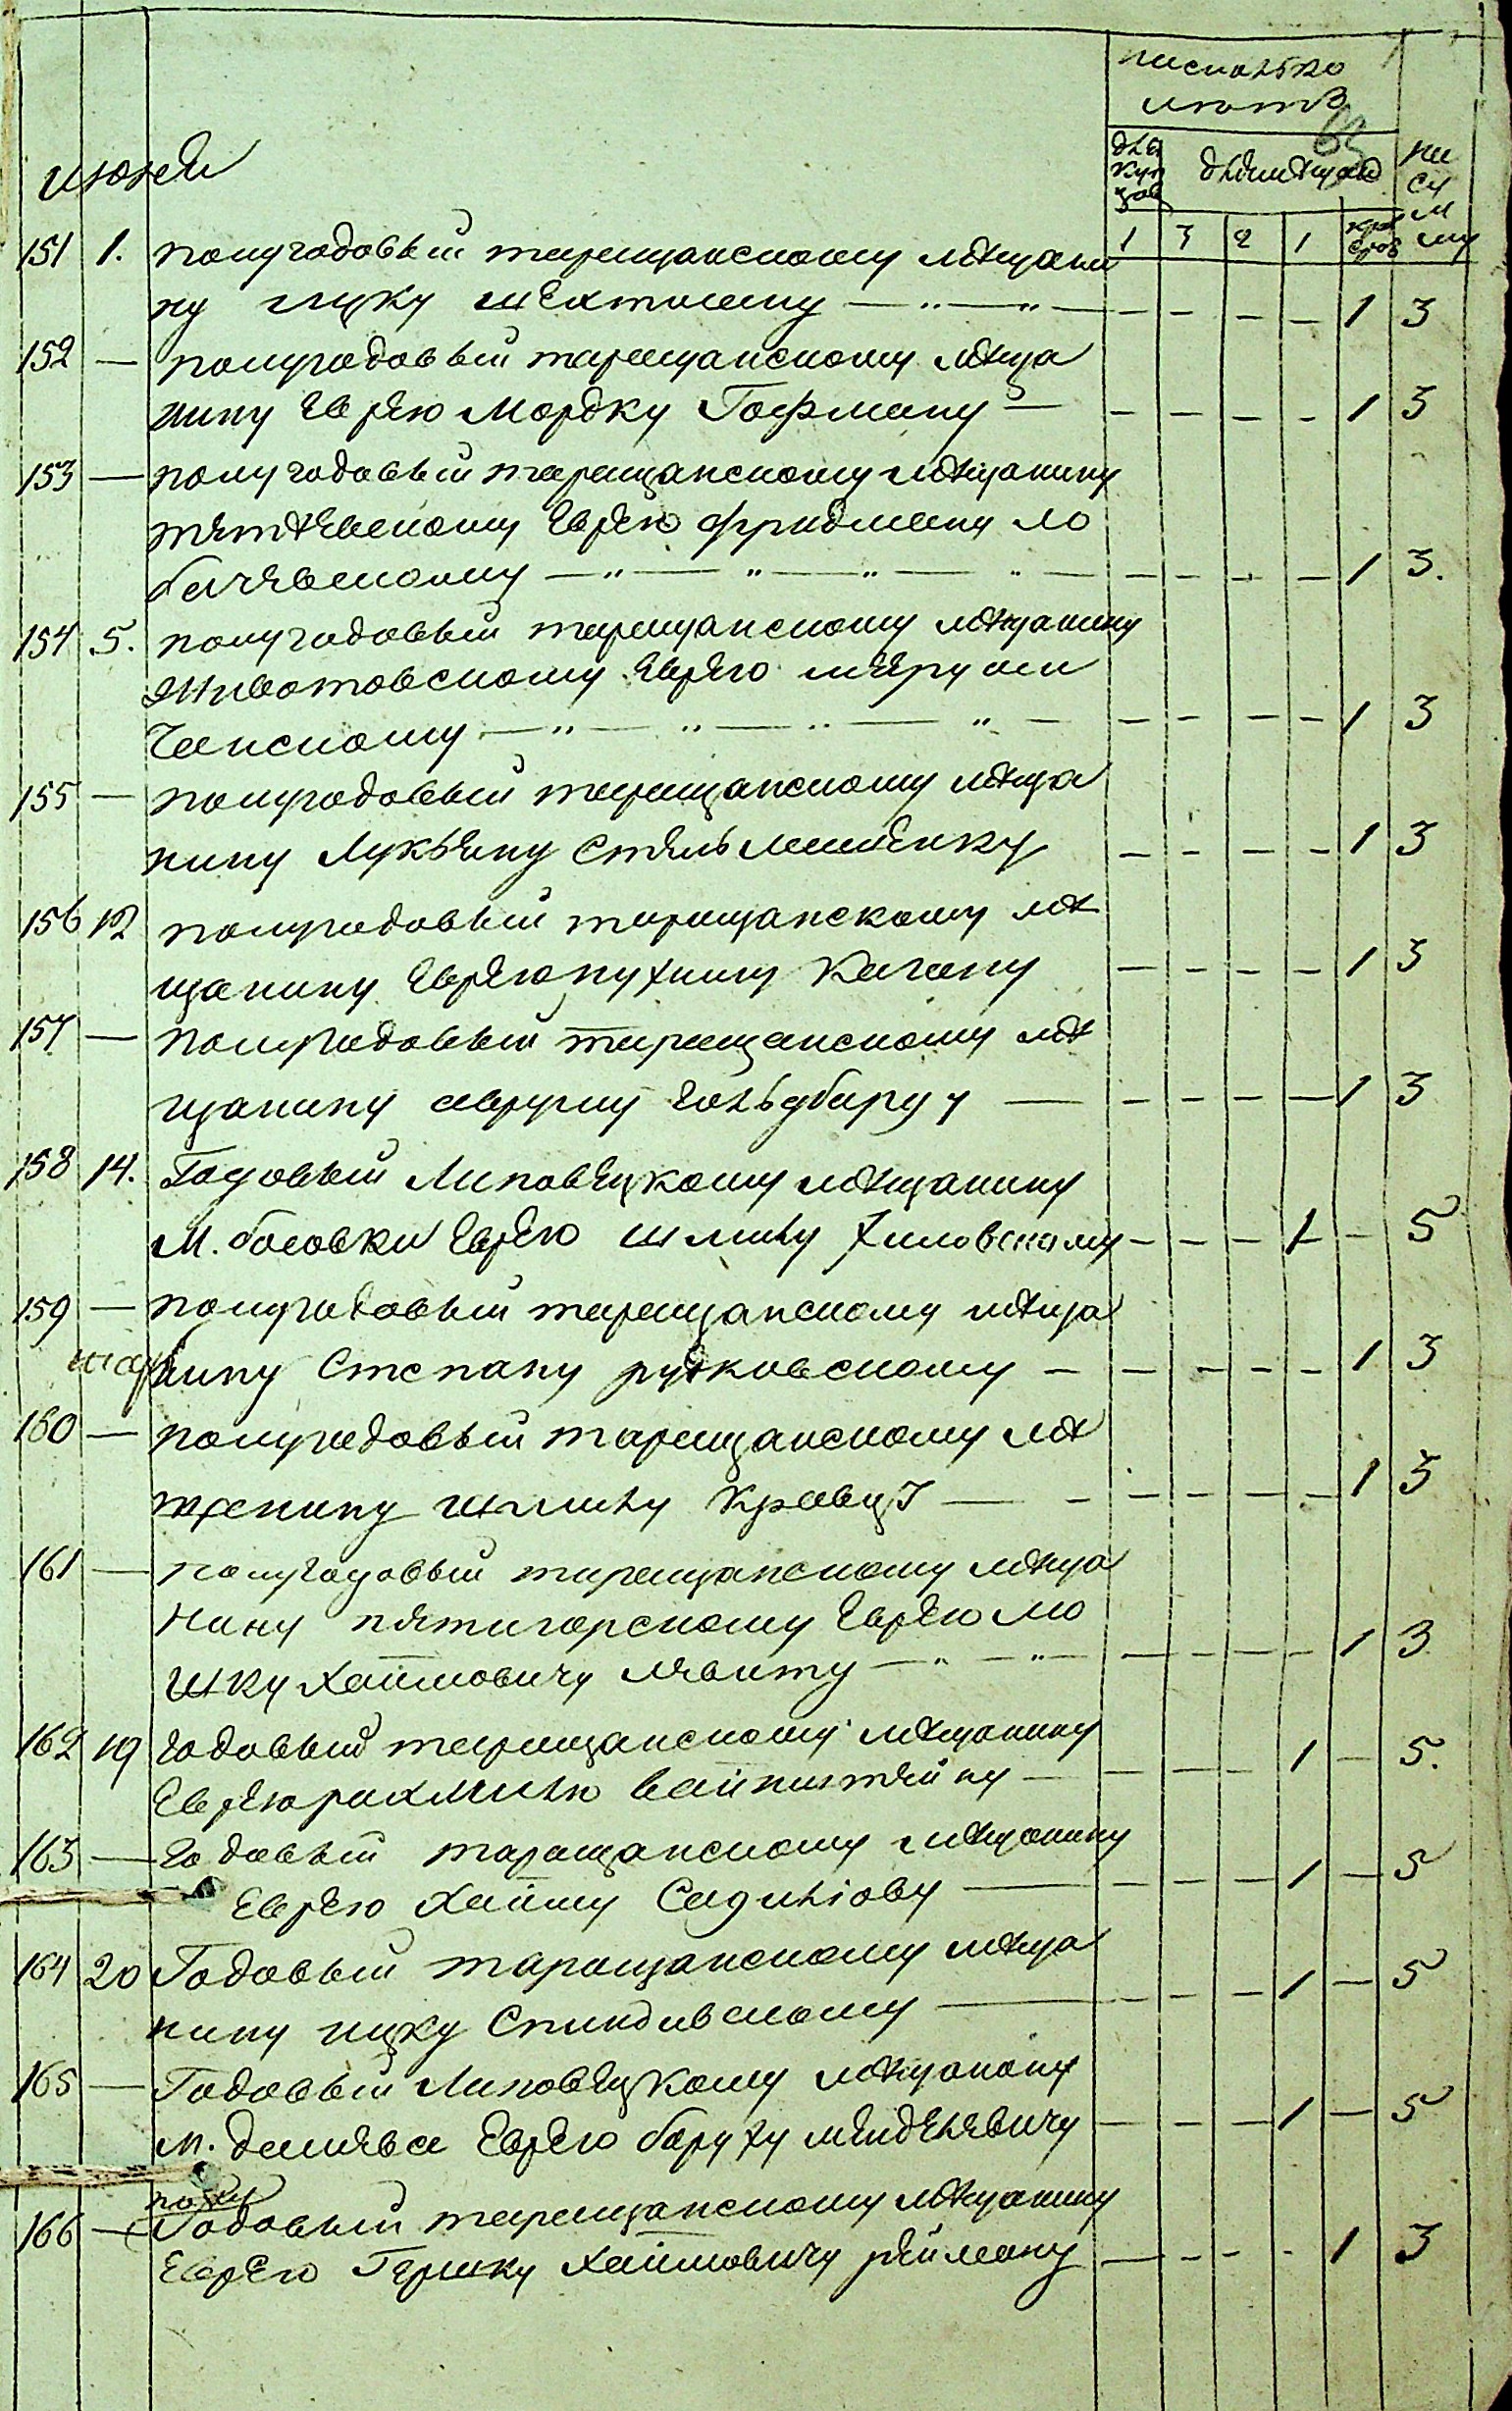 на сколько
летъ
для купцов
для мещанъ
на су м му
июня
1 3 2 1
151 1. полугодовый таращанскому мѣщани
ну ицку шехтману 1 3
152 — полугодовый таращанскому мѣща
нину Еврею Мордку Гофману — 1 3
153 — полугодовый таращанскому мѣщанину
тетіевскому Еврею фридману ло
бачевскому 1 3.
154 5. полугодовый таращанскому мѣщанину
Животовскому Еврею мееру
чанскому 1 3
155 — полугодовый таращанскому мѣща
нину Лукьяну Стельмашенку 1 3
156 12 полугодовый таращанскому мѣ
щанину Еврею нухиму Кагану 1 3
157 — полугодовый таращанскому мѣ
щанину авруму гольдбарду — 1 3
158 14. Годовый Липовецкому мѣщанину
М. босовки Еврею шмилу хиловскому 1 — 5
159 — полугодовый таращанскому мѣща
нину Степану рудковскому — 1 3
160 — полугодовый таращанскому мѣ
щенину шмилу Кравцу — 1 3
161 — полугодовый таращанскому мѣща
нину пятигорскому Еврею мо
шку Хаимовичу левиту 1 3
162 19 годовый таращанскому мѣщанину
Еврею рахмилю вайнштейну — 1 — 5.
163 — годовый таращанскому мѣщанину
Еврею Хаиму Садикову — 1 — 5
164 20 Годовый таращанскому мѣща
нину ицку Спиндивскому — 1 — 5
165 — Годовый Липовецкому мѣщанину
м. дашева Еврею баруху менделевичу 1 — 5
полу
166 — Годовый таращанскому мѣщанину
Еврею Гершку Хаимовичу рейману 1 3